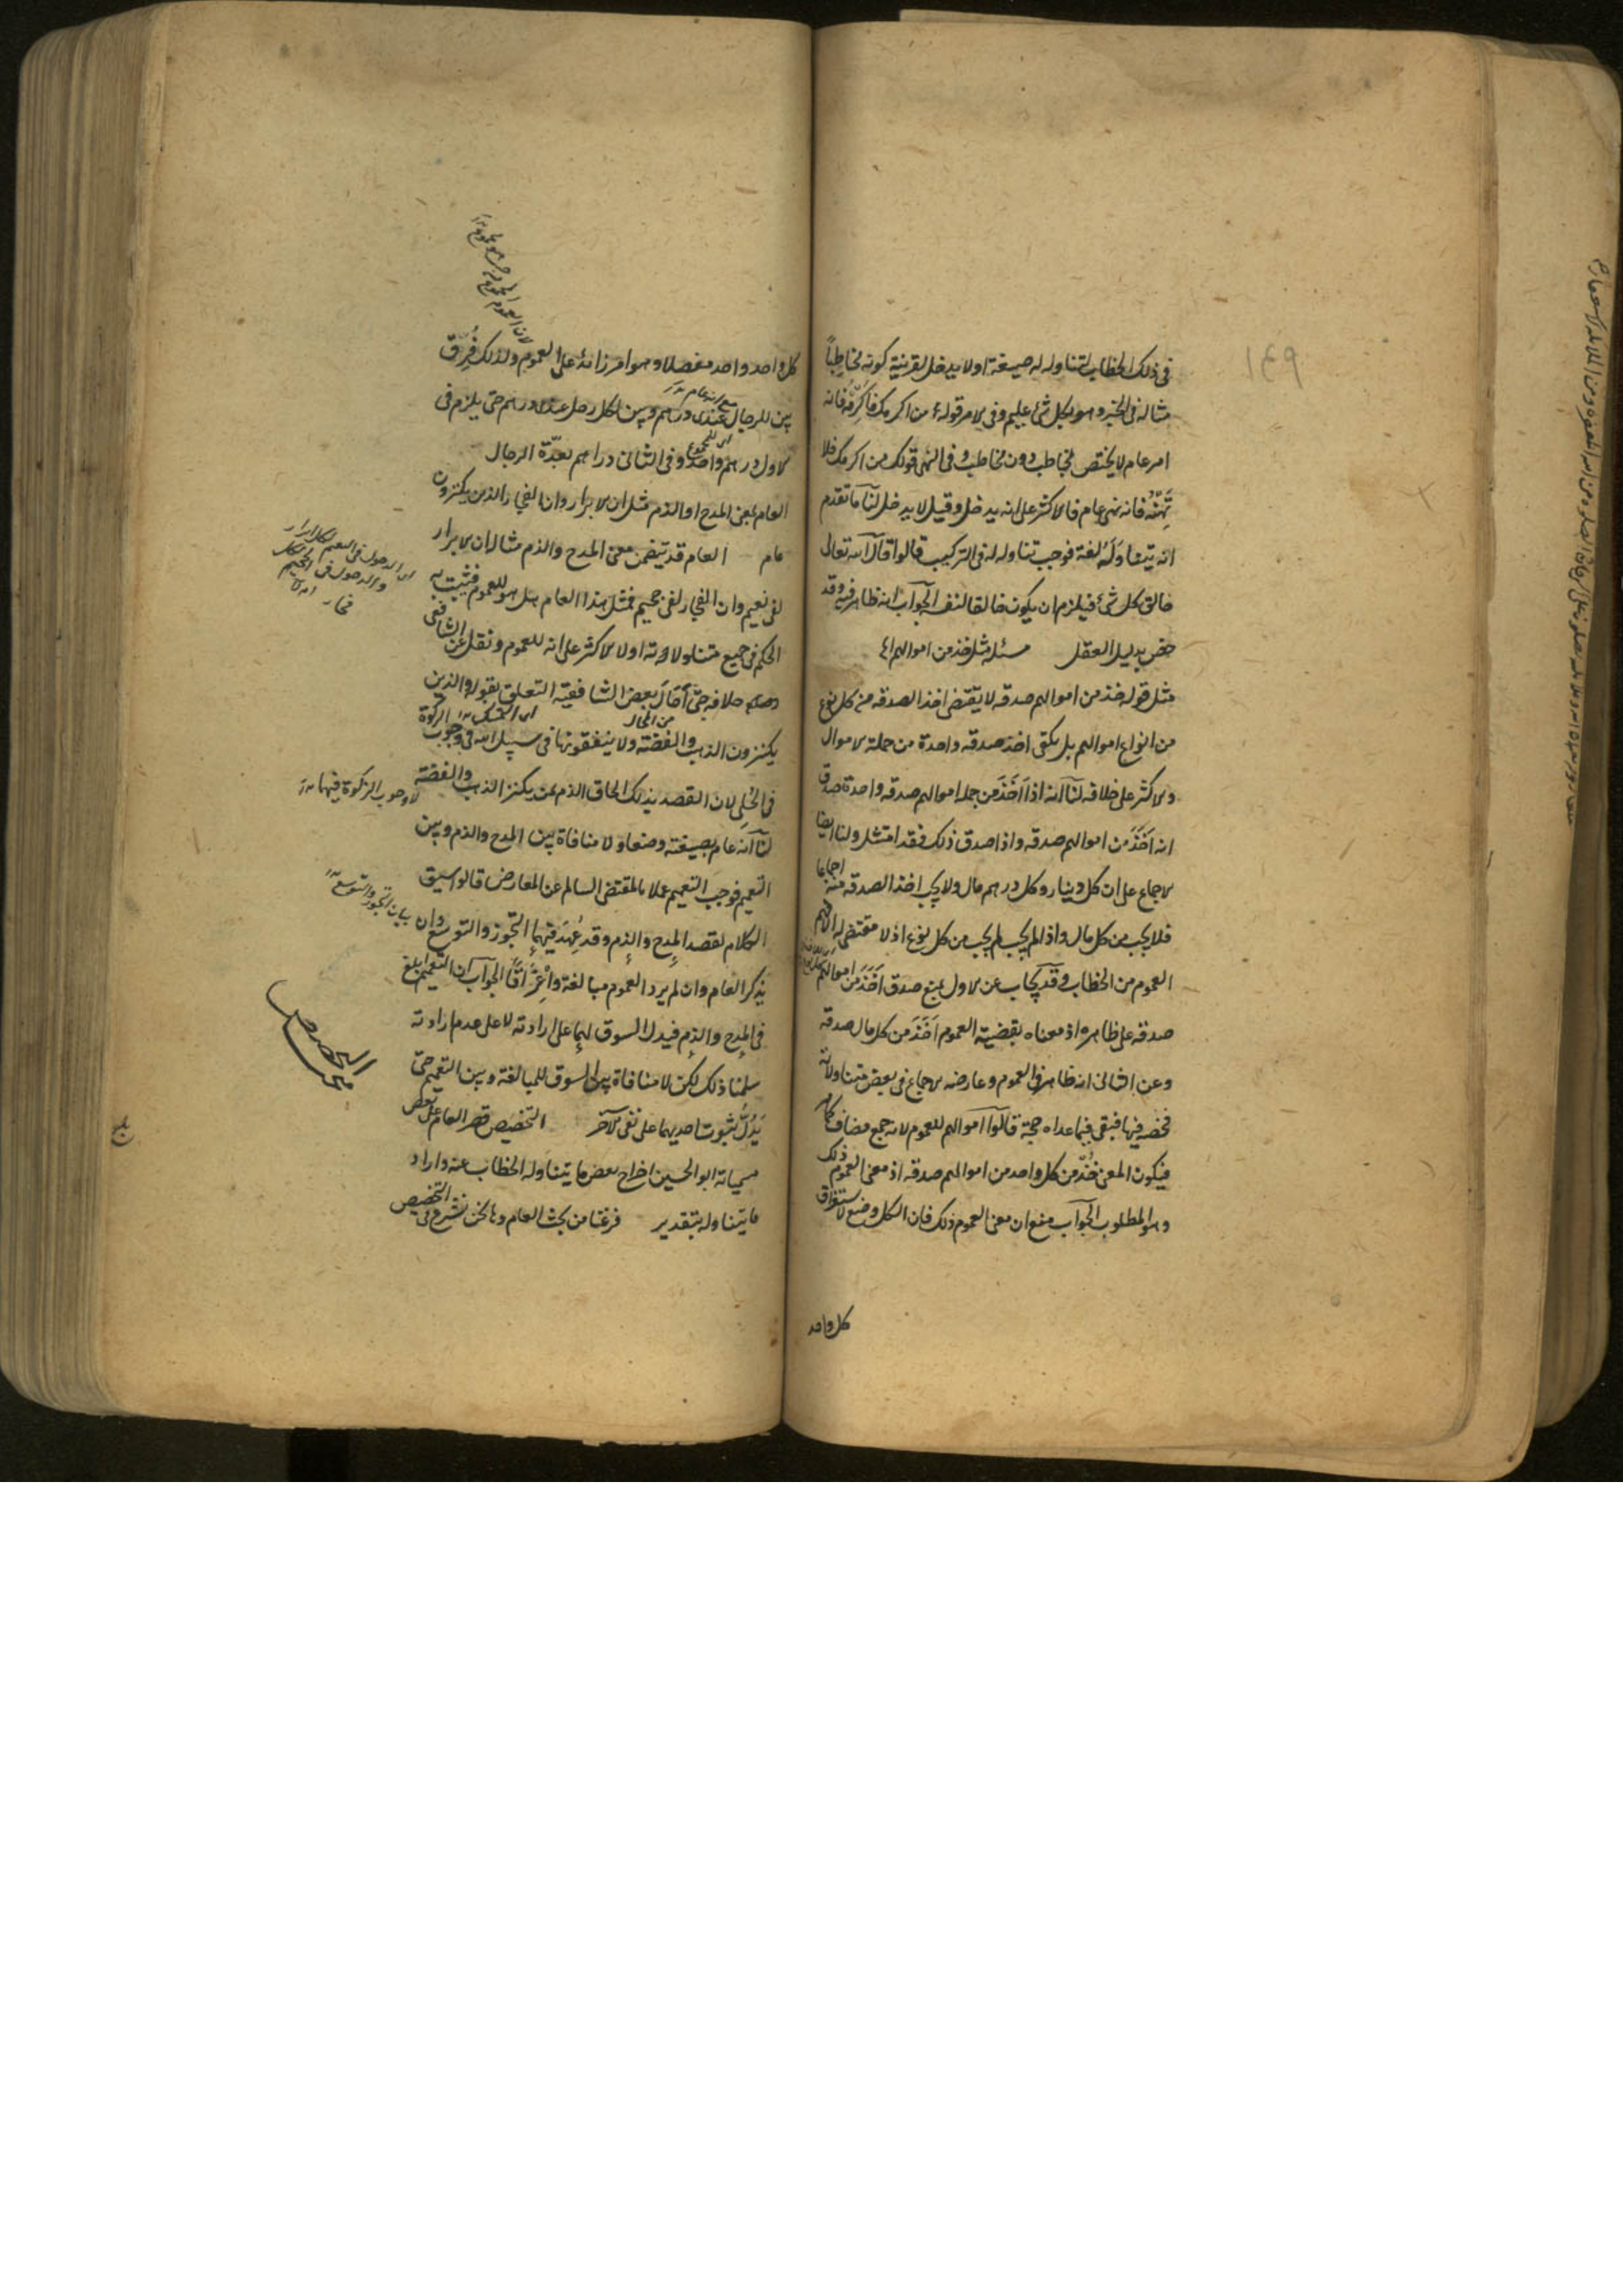 في ذلك الخطاب لتناوله له صيغة اولا يدخل لقرينة كونه مخاطِباً
مثاله في الخبر وهو بكل شئ عليم وفي الامر قوله من اكرمك فاكرمه فانه
امر عام لا يختص بمخاطب دون مخاطب وفي النهي قولك من اكرمك فلا
تهنه فانه نهي عام فالاكثر على انه يدخل وقيل لا يدخل لنا ما تقدم
انه يتناوله لغة فوجب تناوله له في التركيب قالوا قال الله تعالى
خالق كل شئ فيلزم ان يكون خالقا لنفسه الجواب انه ظاهر فيه وقد
خص بدليل العقل مسئلة مثل خذ من اموالهم
مثل قوله خذ من اموالهم صدقه لا يقتضى اخذ الصدقه من كل نوع
من انواع اموالهم بل يكفى اخذ صدقه واحدة من جملة الاموال
والاكثر على خلافه لنا انه اذا اَخَذَ من جمله اموالهم صدقه واحدة صدق
انه اَخَذَ من اموالهم صدقه واذا صدق ذلك فقد امتثل ولنا ايضا
الاجماع على ان كل دينار وكل درهم مال ولا يجب اخذ الصدقه منه اجماعا
فلا يجب من كل مال واذا لم يجب لم يجب من كل نوع اذ لا مقتضى له الا فهم
العموم من الخطاب وقد يجاب عن الاول بمنع صدق اَخَذَ من اموالهم
صدقه على ظاهره اذ معناه بقضية العموم اَخَذَ من كل مال صدقه
وعن الثانى انه ظاهر في العموم وعارضه الاجماع في بعض متناولاته
فخصه فيها فبقى فيما عداه حجة قالوا اموالهم للعموم لانه جمع مضاف كما مر
فيكون المعنى خُذ من كل واحد من اموالهم صدقه اذ معنى العموم ذلك
وهو المطلوب الجواب منع ان معنى العموم ذلك فان الكل وضع لاستغراق
كل واحد
كل واحد واحد مفصلا وهو امر زائد على العموم ولذلك فُرِّق
بين للرجال عندى درهم وبين لكل رجل عندى درهم حتى يلزم في
الاول درهم واحد وفي الثانى دراهم بعدّة الرجال
العام بمعنى المدح او الذم مثل ان الابرار وان الفجار والذين يكنزون
عام العام قد يتضمن معنى المدح والذم مثال ان الابرار
لفى نعيم وان الفجار لفى جحيم فمثل هذا العام هل هو للعموم فيثبت به
الحكم في جميع متناولاته اولا الاكثر على انه للعموم ونقل عن الشافعى
خلافه حتى قال بعض الشافعيّة التعلق بقوله والذين
يكنزون الذهب والفضة ولا ينفقونها في سبيل الله في وجوب الزكوة
في الحُلِى لان القصد بذلك الحاق الذم بمن يكنز الذهب والفضة
لا وجوب الزكوة فيها
لنا انه عام بصيغته وضعا ولا منافاة بين المدح والذم وبين
التعميم فوجب التعميم عملا بالمقتضى السالم عن المعارض قالوا سيق
الكلام لقصد المدح والذم وقد عُهِدَ فيهما التجوز والتوسع وان
يذكر العام وان لم يرد العموم مبالغة وأغراقا الجواب ان التعميم ابلغ
في المدح والذم فيدل السوق لهما على ارادته لا على عدم ارادته
سلمنا ذلك لكن لا منافاة بين السوق للمبالغة وبين التعميم حتى
يَدُلّ ثبوت احديهما على نفى الآخر التخصيص قصر العام على بعض
مسمياته ابو الحسين اخراج بعض ما يتناوله الخطاب عنه واراد
ما يتناوله بتقدير فرغنا من بحث العام وها نحن نشرع في التخصيص